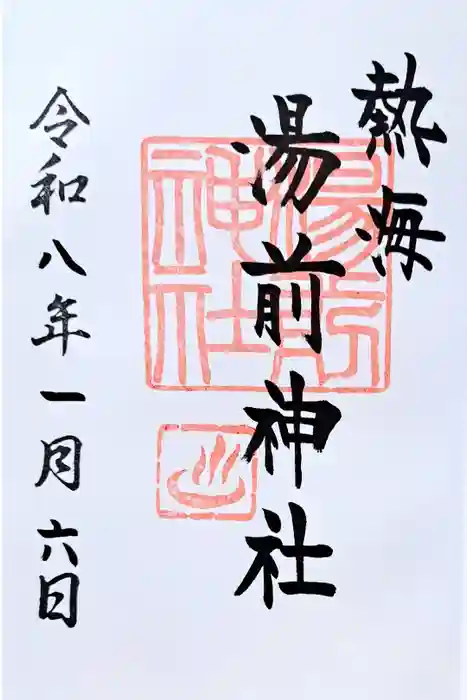 熱海
湯前神社
湯前
神社
之印
令和八年一月六日